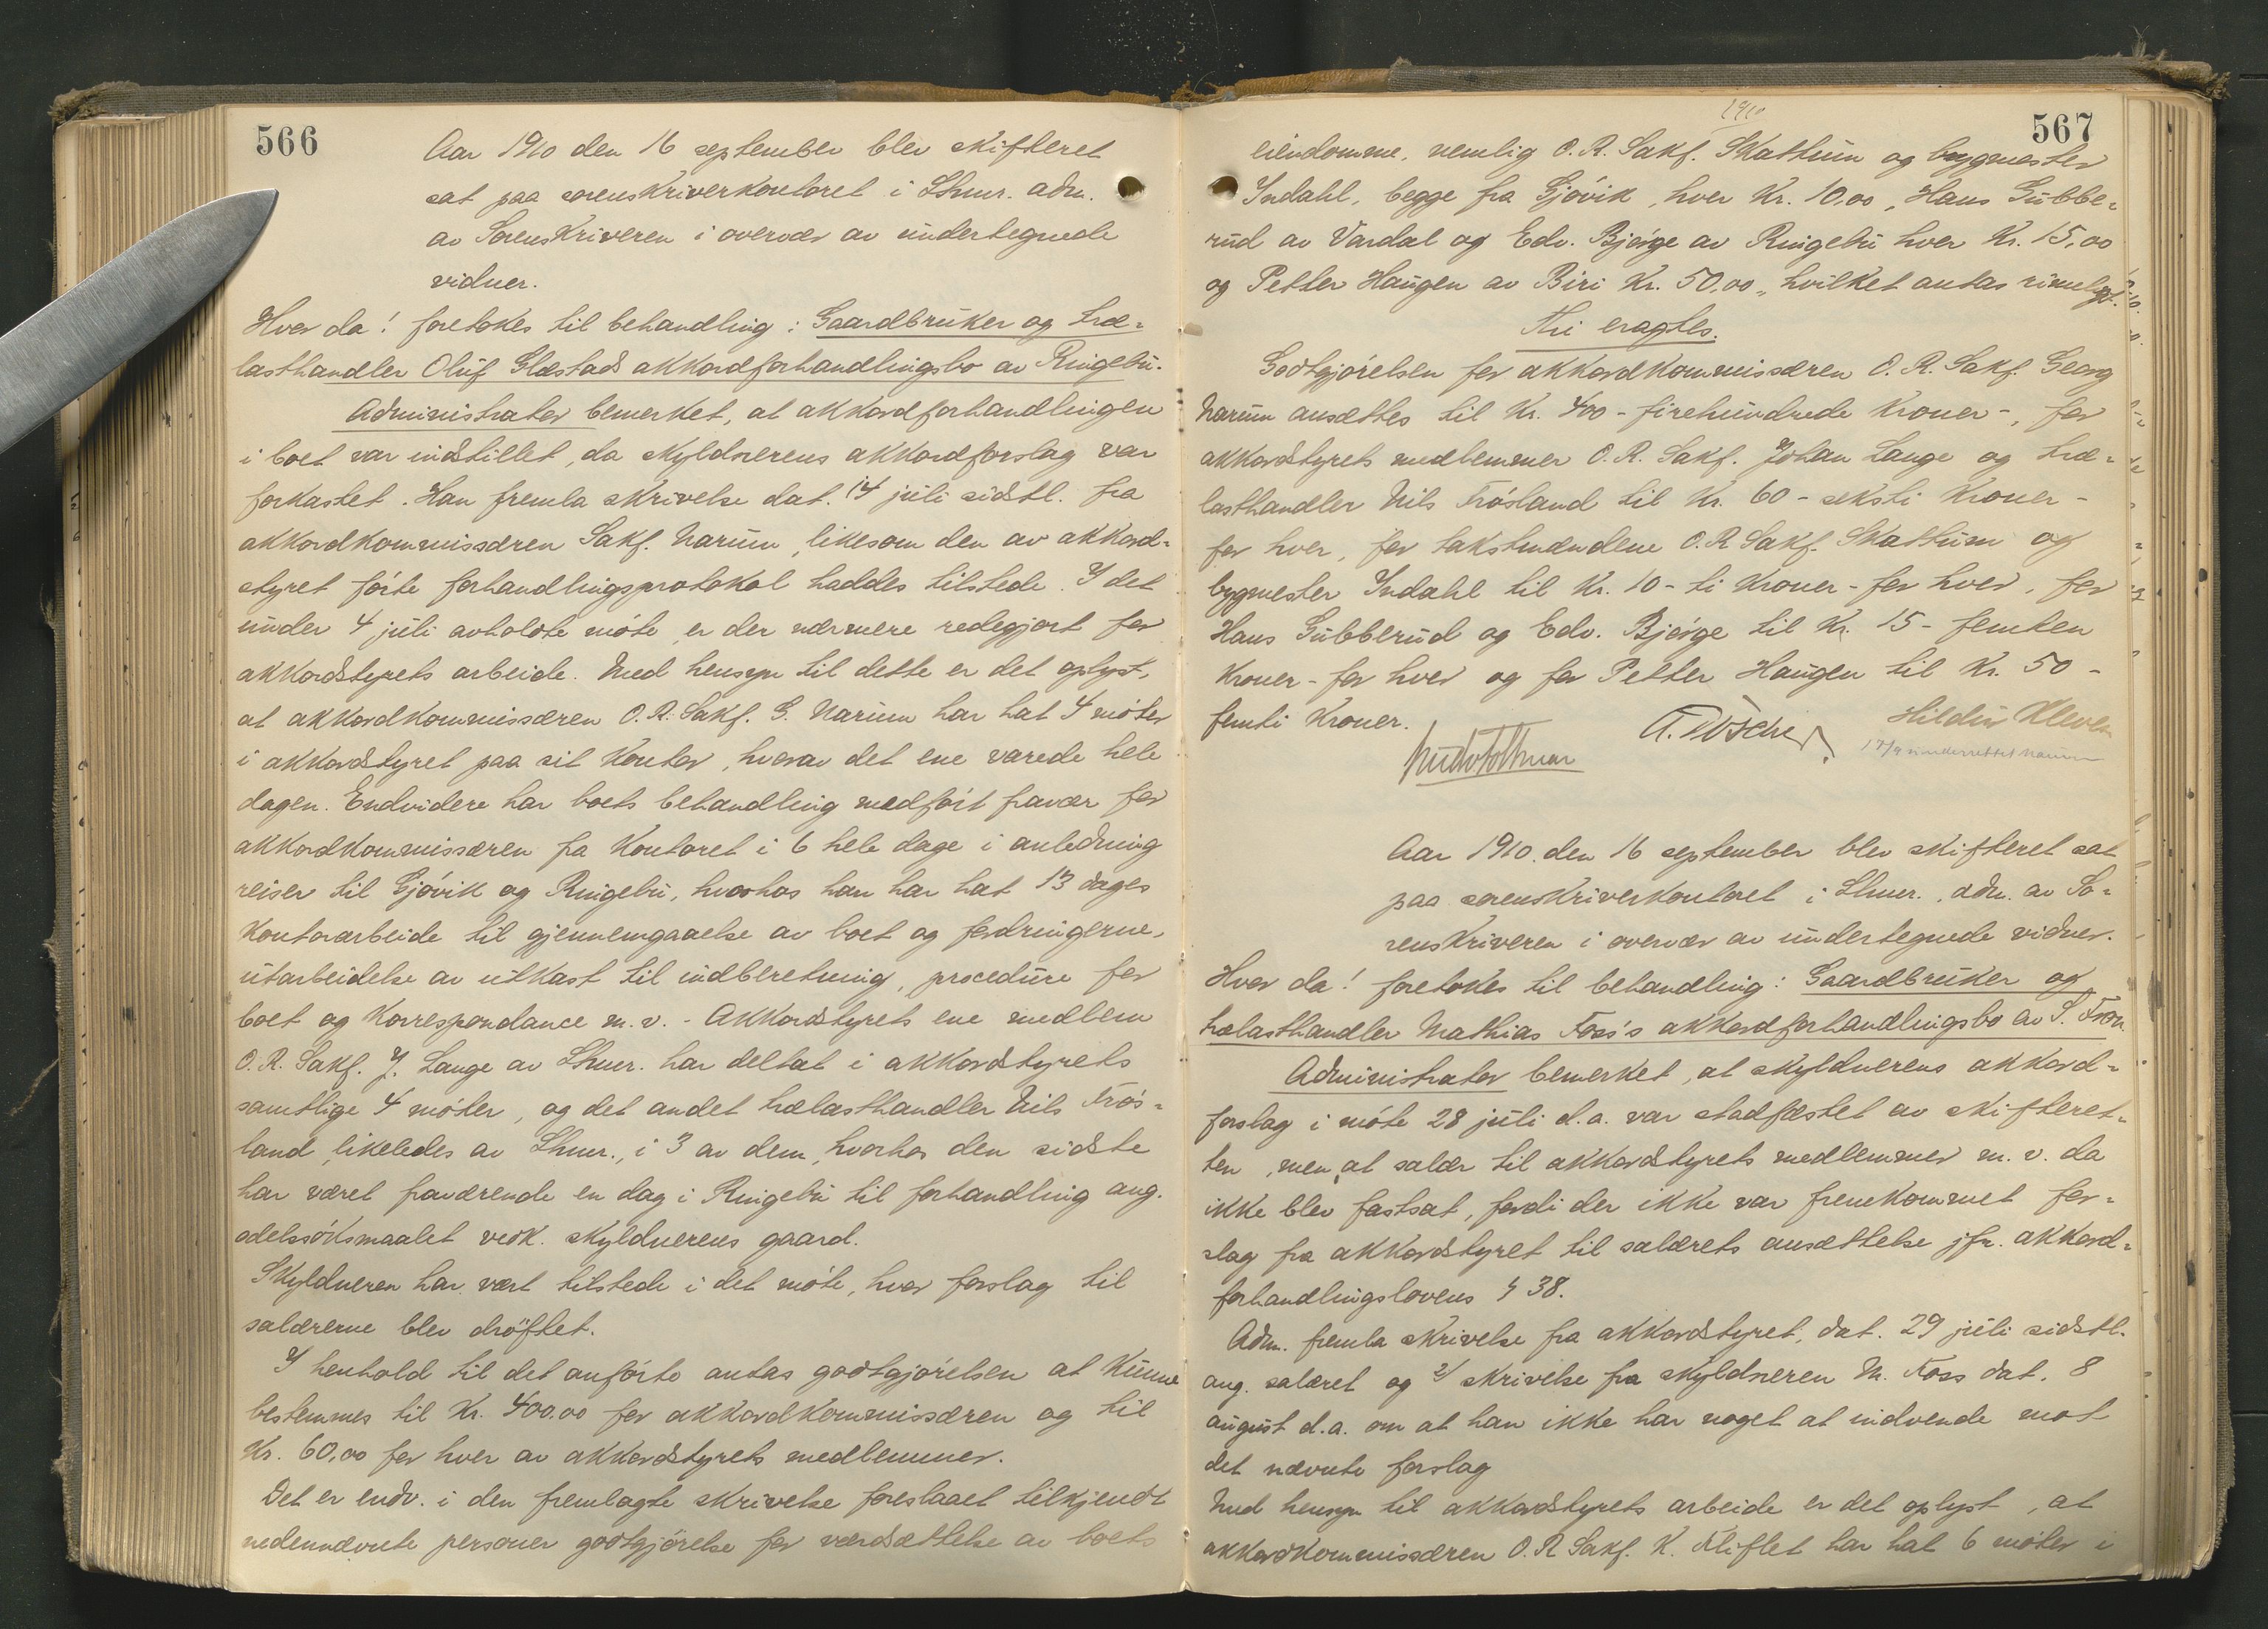 566
Aar 1910 den 16 september blev skifteret
sat paa sorenskriverkontoret i Lhmr. adm.
av Sorenskriveren i overvær av undertegnede
vidner.
Hvor da! foretokes til behandling: Gaardbruker og træ-
lasthandler Oluf Glæstads akkordforhandlingsbo av Ringebu.
Administrator bemerket, at akkordforhandlingen
i boet var indstillet, da skyldnerens akkordforslag var
forkastet. Han fremla skrivelse dat. 14 juli sidstl. fra
akkordkommissæren Sakf. Narum, likesom den av akkord-
styret førte forhandlingsprotokol haddes tilstede. I det
under 4 juli avholdte møte er der nærmere redegjort for
akkordstyrets arbeide. Med hensyn til dette er det oplyst,
at akkordkommissæren O.R. Sakf. G. Narum har hat 4 møter
i akkordstyret paa sit kontor, hvorav det ene varede hele
dagen. Endvidere har boets behandling medført fravær for
akkordkommissæren fra kontoret i 6 hele dage i anledning
reiser til Gjøvik og Ringebu, hvorhos han har hat 13 dages
kontorarbeide til gjennemgaaelse av boet og fordringerne,
utarbeidelse av utkast til indberetning, procedure for
boet og korrespondance m.v. - Akkordstyrets ene medlem
O.R. Sakf. J. Lange av Lhmr. har deltat i akkordstyrets
samtlige 4 møter, og det andet trælasthandler Nils Frøs-
land, likeledes av Lhmr., i 3 av dem, hvorhos den sidste
har været fraværende en dag i Ringebu til forhandling ang.
odelssøksmaalet vedk. skyldnerens gaard.
Skyldneren har vært tilstede i det møte, hvor forslag til
salærerne blev drøftet.
I henhold til det anførte antas godtgjørelsen at kunne
bestemmes til Kr. 400.00 for akkordkommissæren og til
Kr. 60,00 for hver av akkordstyrets medlemmer.
Det er endv. i den fremlagte skrivelse foreslaaet tilkjendt
nedennævnte personer godtgjørelse for værdsættelse av boets
1910
567
eiendomme, nemlig O.R. Sakf. Skattum og bygmester
Indahl, begge fra Gjøvik, hver Kr. 10,00, Hans Gubbe-
rud av Vardal og Edv. Bjørge av Ringebu hver Kr. 15,00
og Petter Haugen av Biri Kr. 50,00, hvilket antas rimeligt.
Thi eragtes:
Godtgjørelsen for akkordkommissæren O.R. Sakf. Georg
Narum ansættes til Kr. 400 - firehundrede kroner -, for
akkordstyrets medlemmer O.R. Sakf. Johan Lange og træ-
lasthandler Nils Frøsland til Kr. 60 - seksti kroner -
for hver, for takstmændene O.R Sakf. Skattum og
bygmester Indahl til Kr. 10 - ti kroner - for hver, for
Hans Gubberud og Edv. Bjørge til Kr. 15 - femten
kroner - for hver og for Petter Haugen til Kr. 50 -
femti kroner.
Hildur Kleven
17/9 underrettet Narum
Aar 1910. den 16 september blev skifteret sat
paa sorenskriverkontoret i Lhmr., adm. av So-
renskriveren i overvær av undertegnede vidner.
Hvor da! foretokes til behandling: Gaardbruker og
trælasthandler Mathias Foss's akkordforhandlingsbo av S. Fron
Administrator bemerket, at skyldnerens akkord-
forslag i møte 28 juli d.a. var stadfæstet av skifteret-
ten, men at salær til akkordstyrets medlemmer m.v. da
ikke blev fastsat, fordi der ikke var fremkommet for-
slag fra akkordstyret til salærets ansættelse jfr. akkord-
forhandlingslovens § 38.
Adm. fremla skrivelse fra akkordstyret, dat. 29 juli sidstl.
ang. salæret og 2/ skrivelse fra skyldneren M. Foss dat. 8
august d.a. om at han ikke har noget at indvende mot
det nævnte forslag
Med hensyn til akkordstyrets arbeide er det oplyst, at
akkordkommissæren O.R Sakf. K. Kliflet har hat 6 møter i